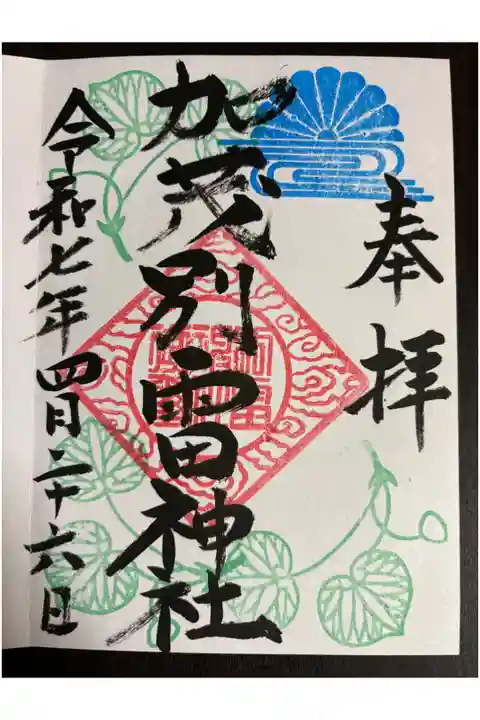 奉拝
加茂別雷神社
令和七年四月二十六日